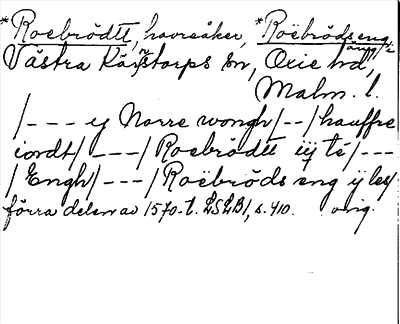 *Roebrödtt, havreåker, *Roëbrödseng,
äng i
Västra Kärrstorps sn, Oxie hd,
Malm. l.
/--- ey Norre wongh/--/hauffre
iordt/---/Roebrödtt iÿ té/---
/Engh/---/Roëbröds eng ÿ les/
förra delen av 1570-t. LSLB1, s. 410. orig.